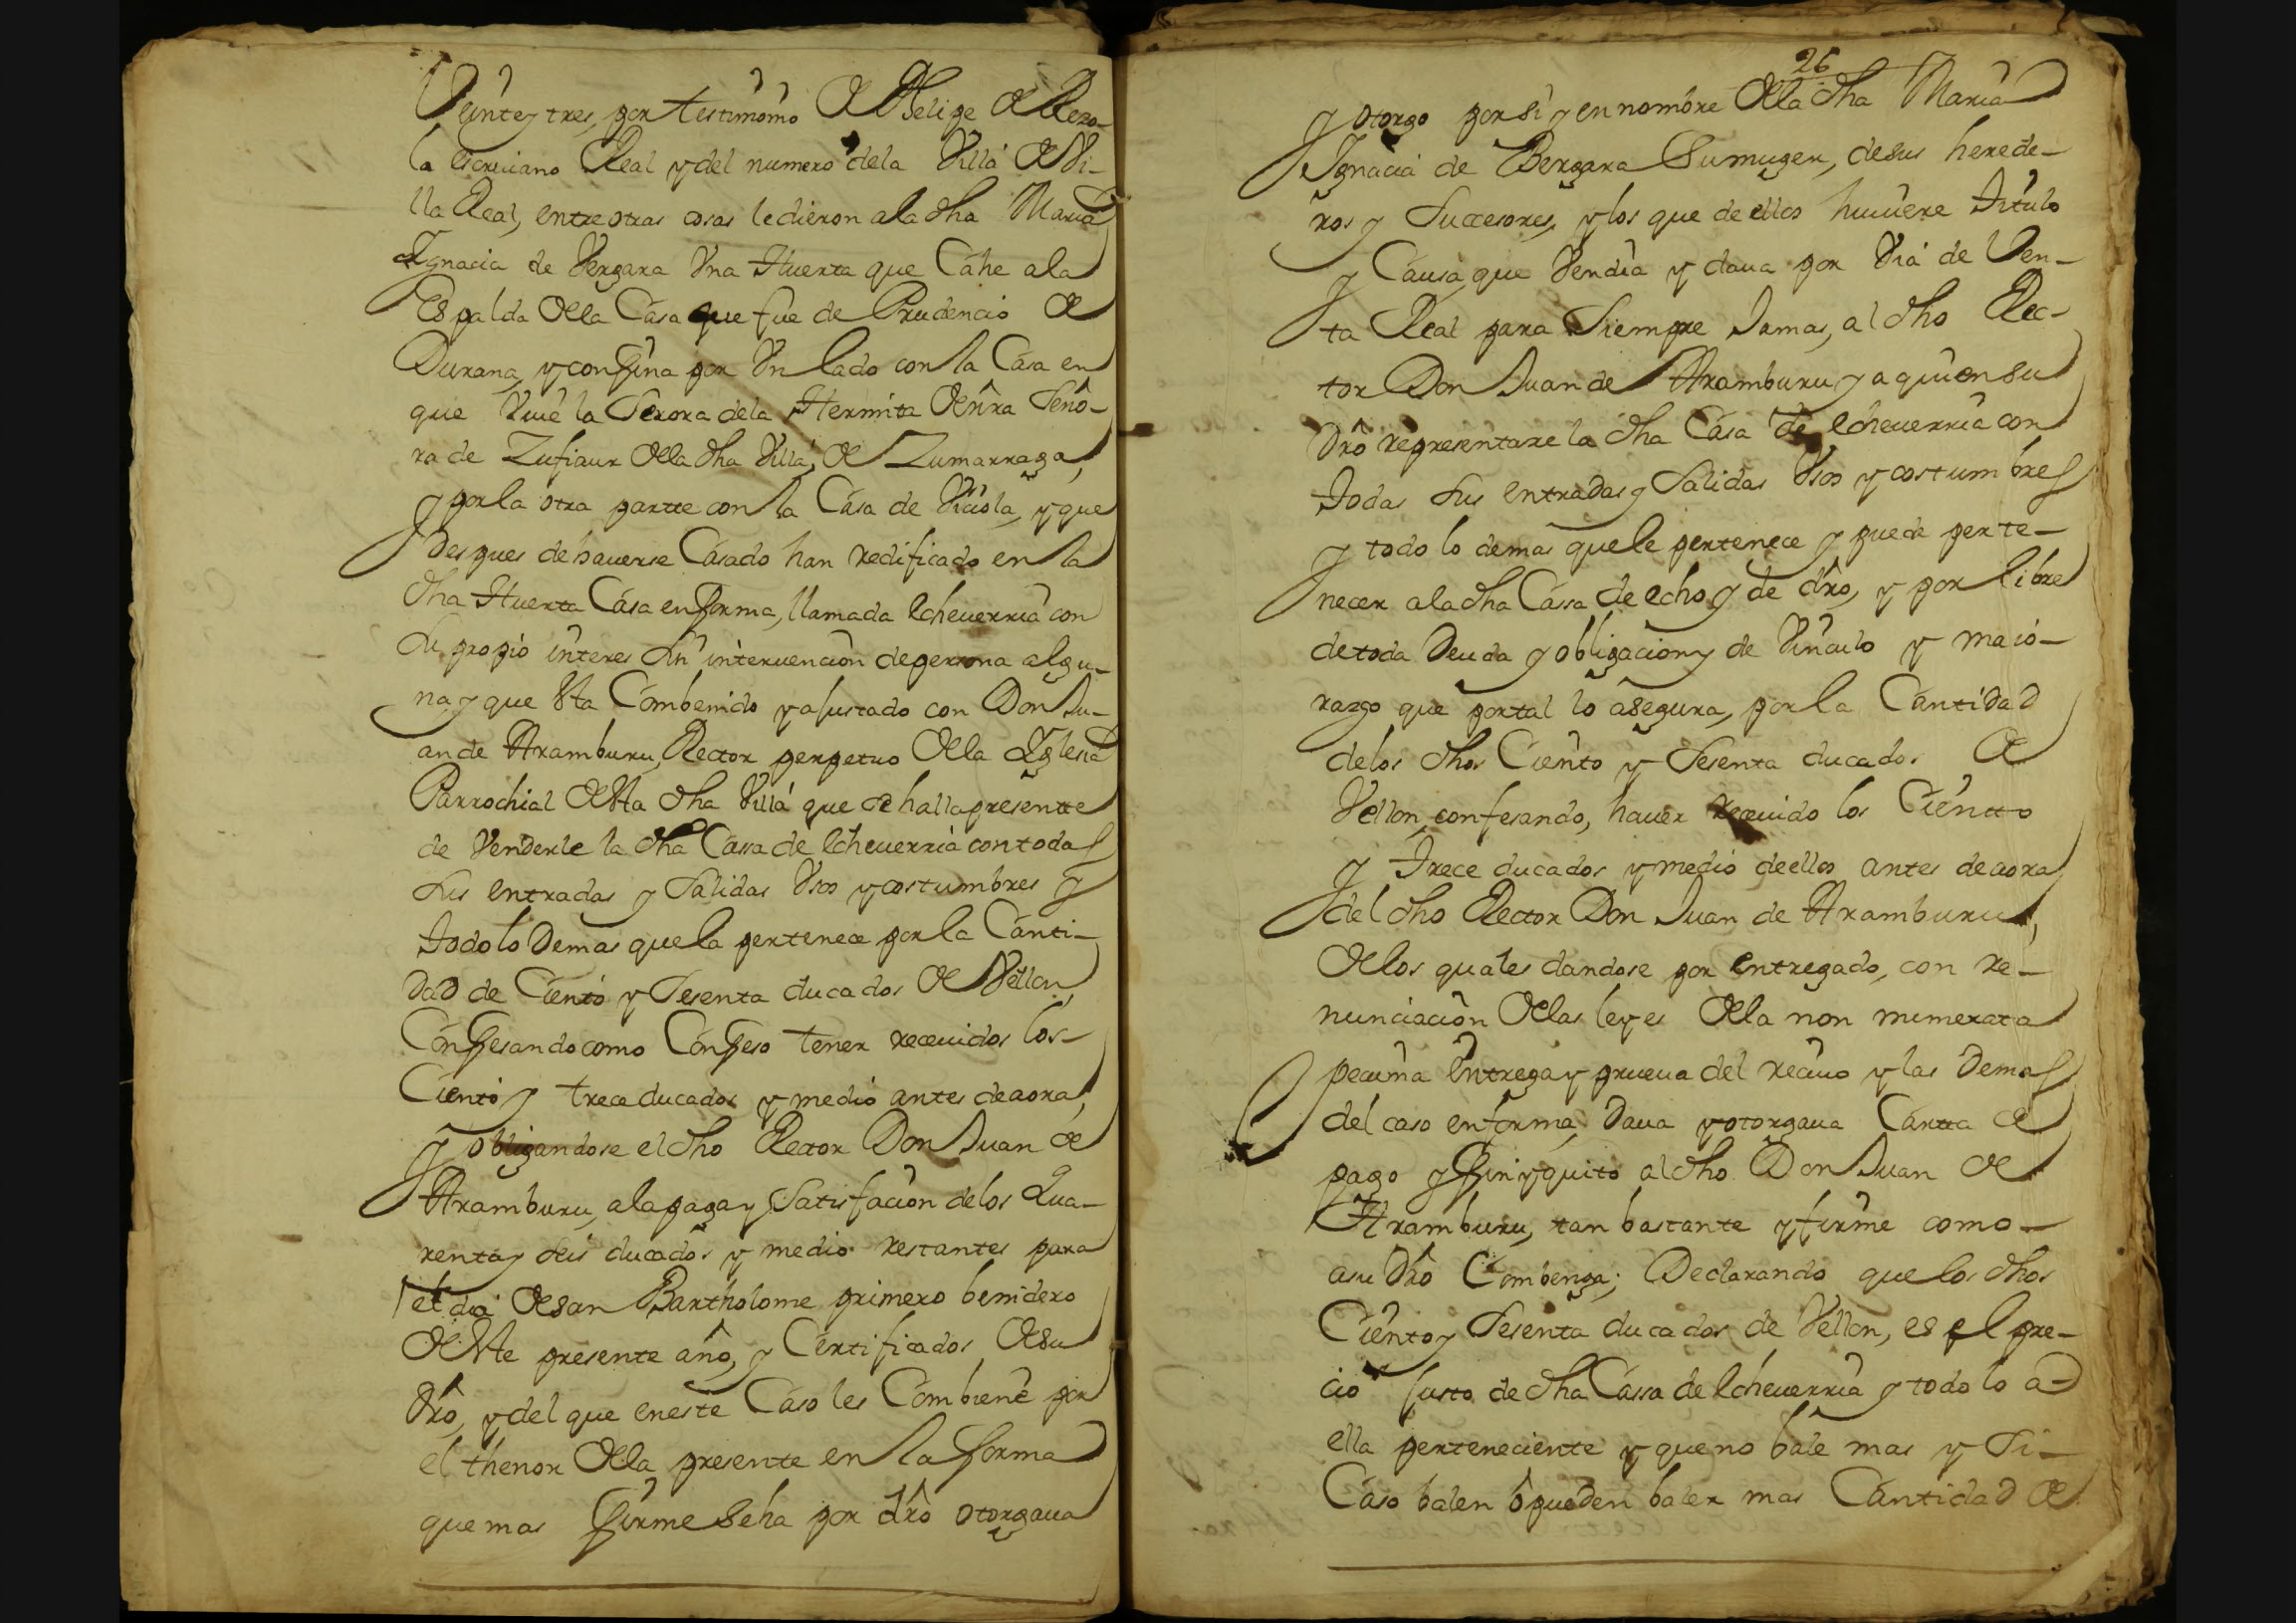 Veinte y tres, por testimonio de Phelipe de Rezo-
la escriuano Real y del numero dela Villa de Vi-
lla Real, entre otras cosas le dieron ala dha Maria
Ygnacia de Vergara Vna Huerta que Cahe ala
Espalda dela Casa que fue de Prudencio de
Durana, y confina por Vn lado con la Casa en
que Viue la Serora dela Hermita de nra Seño-
ra de Zufiaur dela dha Villa, de Zumarraga,
y por la otra partte con la Casa de Viciola, y que
Despues de hauerse Casado han redificado en la
dha Huerta Casa en forma, llamada Echeuerria con
su propio interes sin interuencion de persona algu-
na, y que esta Combenido y ajustado con Don Ju-
an de Aramburu, Rector perpetuo dela Yglesia
Parrochial desta dha Villa que se halla presentte
de Venderle la dha Cassa de Echeuerria con todas
sus entradas y Salidas Vsos y costumbres y
todo lo Demas que la pertenece por la Canti-
dad de Ciento y Sesenta ducados de Vellon,
Confesando como Confeso tener receuidos los
Ciento y trece ducados y medio antes de aora,
y obligandose el dho Rector Don Juan de
Aramburu, ala paga y Satisfacion delos Qua-
renta y seis ducados y medio restantes para
el dia de san Bartholome primero benidero
deste presente año, y Certificados de su
dro, y del que en este Caso les Combiene por
el thenor dela presente en la forma
que mas firme se ha por dro otorgaua
26
y otorgo por si y en nombre dela dha Maria
Ygnacia de Bergara Su muger, de sus herede-
ros y Successores, y los que de ellos huuiere titulo
y Causa, que Vendia y daua por Via de Ven-
ta Real para Siempre Jamas, al dho Rec-
tor Don Juan de Aramburu y a quien su
dro representare la dha Casa de Echeuerria con
todas sus entradas y Salidas Vsos y costumbres
y todo lo demas que le pertenece y puede perte-
necer ala dha Cassa de echo y de dro, y por libre
de toda Deuda y obligacion y de Vinculo y maio-
razgo que por tal lo asegura, por la Cantidad
delos dhos Ciento y Sesenta ducados de
Vellon, confesando, hauer receuido los Cientto
y Trece ducados y medio de ellos antes de aora
del dho Rector Don Juan de Aramburu,
de los quales dandose por entregado, con re-
nunciacion delas leyes dela non numerata
pecunia Entrega y prueua del reciuo y las Demas
del caso en forma, Daua y otorgaua Cartta de
pago y finiyquito al dho Don Juan de
Aramburu, tan bastante y firme como
a su dro Combenga; Declarando que los dhos
Ciento y Sesenta ducados de Vellon, es el pre-
cio justo de dha Cassa de Echeuerria y todo lo a
ella perteneciente y que no bale mas y Si
Caso balen o pueden baler mas Cantidad de